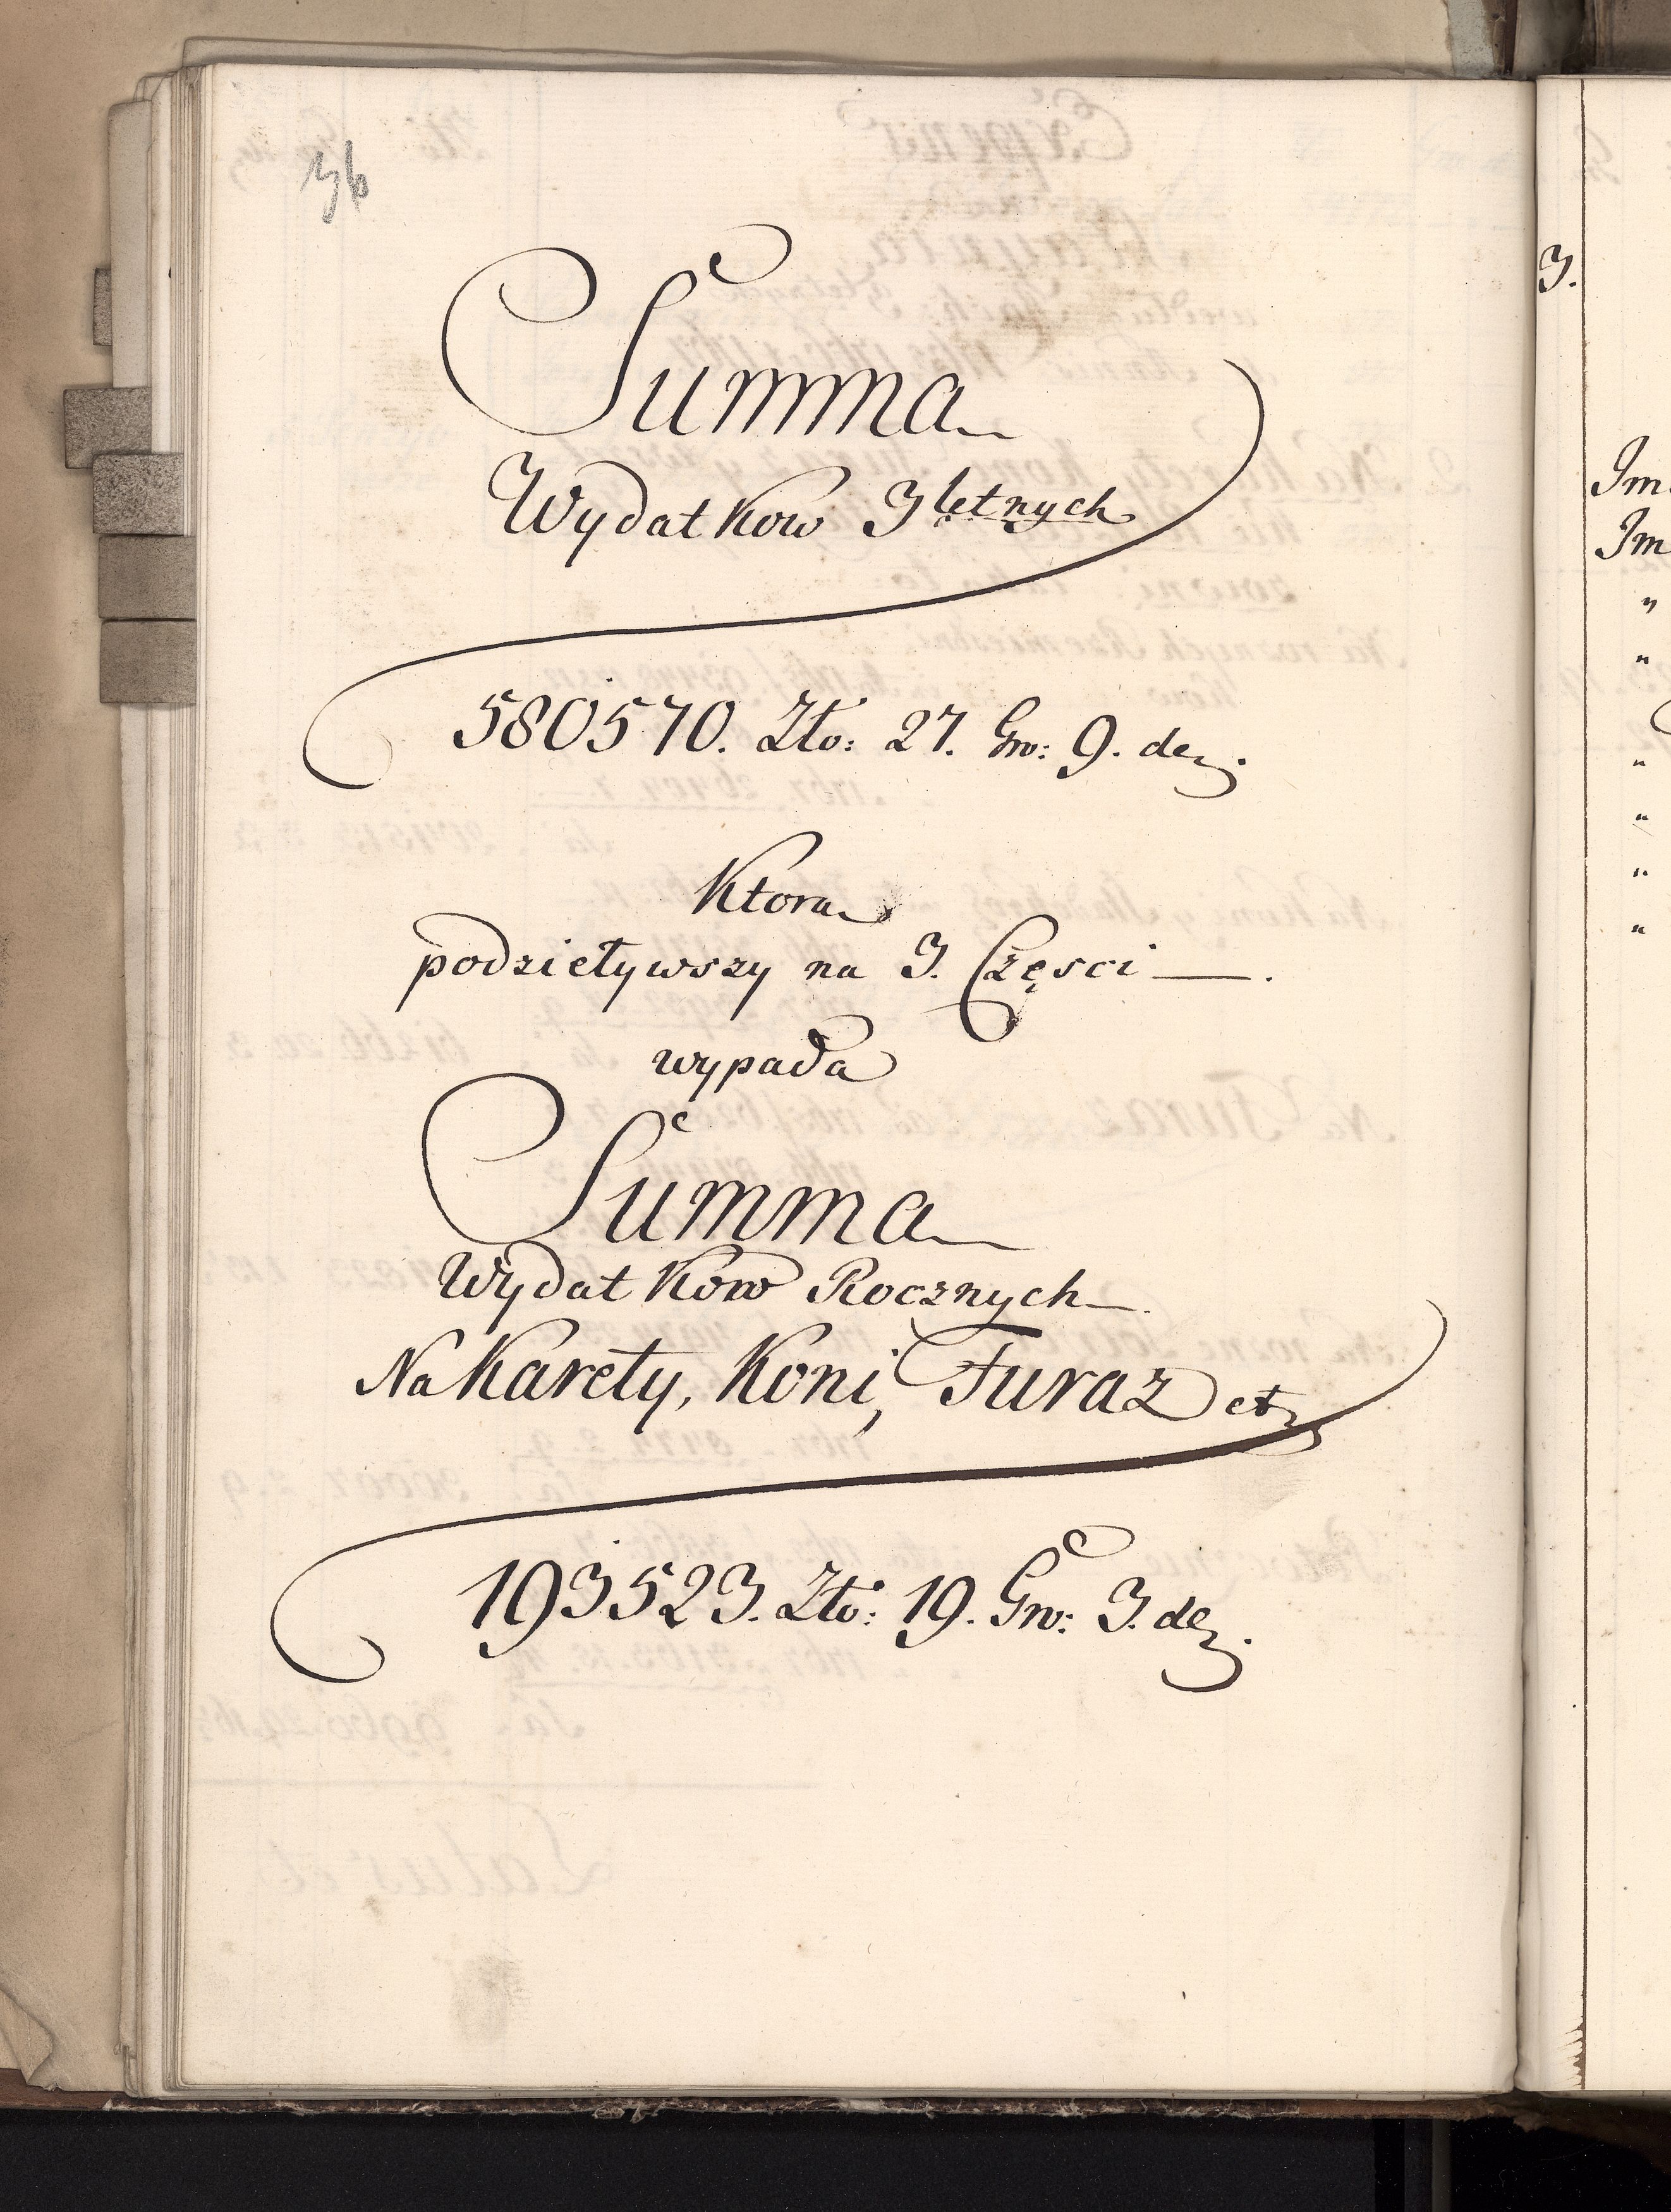 36
Summa
Wydatkow 3letnych
580570. Zło: 27. Gro: 9. de.
Ktora
podzieływszy na 3. Częsci —.
wypada
Summa
Wydatkow Rocznych
Na Karety, Koni, Furaz etc
193523. Zło: 19. Gro: 3. de.
3.
Im
Im
"
"
"
"
"
"